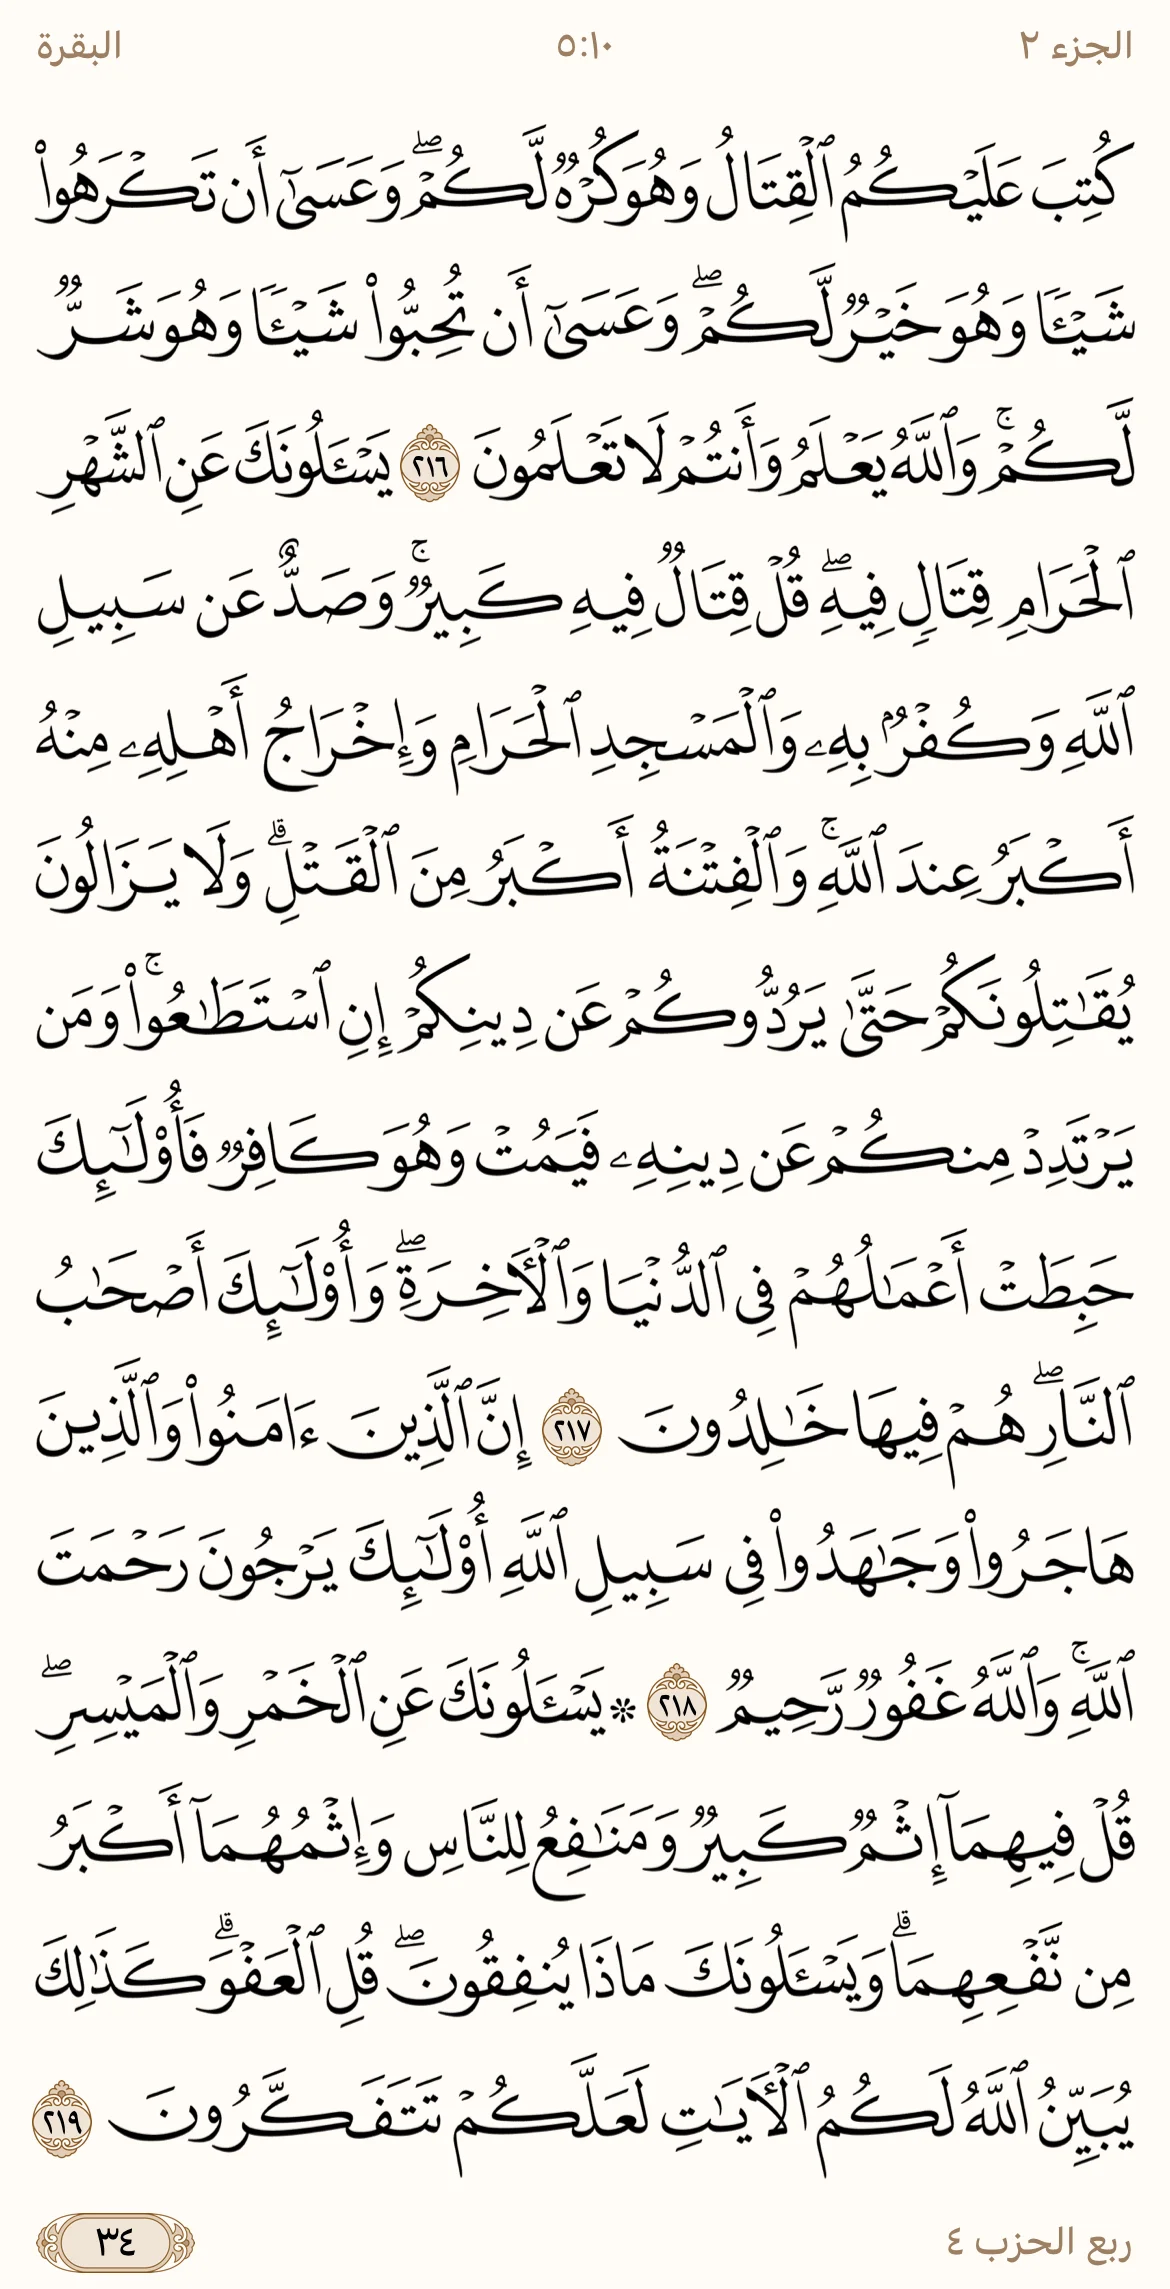 الجزء ٢
٥:١٠
البقرة
كُتِبَ عَلَيْكُمُ ٱلْقِتَالُ وَهُوَ كُرْهٌ لَّكُمْ ۖ وَعَسَىٰٓ أَن تَكْرَهُوا۟
شَيْـًٔا وَهُوَ خَيْرٌ لَّكُمْ ۖ وَعَسَىٰٓ أَن تُحِبُّوا۟ شَيْـًٔا وَهُوَ شَرٌّ
لَّكُمْ ۚ وَٱللَّهُ يَعْلَمُ وَأَنتُمْ لَا تَعْلَمُونَ ٢١٦ يَسْـَٔلُونَكَ عَنِ ٱلشَّهْرِ
ٱلْحَرَامِ قِتَالٍ فِيهِ ۖ قُلْ قِتَالٌ فِيهِ كَبِيرٌ ۚ وَصَدٌّ عَن سَبِيلِ
ٱللَّهِ وَكُفْرٌۢ بِهِۦ وَٱلْمَسْجِدِ ٱلْحَرَامِ وَإِخْرَاجُ أَهْلِهِۦ مِنْهُ
أَكْبَرُ عِندَ ٱللَّهِ ۚ وَٱلْفِتْنَةُ أَكْبَرُ مِنَ ٱلْقَتْلِ ۗ وَلَا يَزَالُونَ
يُقَـٰتِلُونَكُمْ حَتَّىٰ يَرُدُّوكُمْ عَن دِينِكُمْ إِنِ ٱسْتَطَـٰعُوا۟ ۚ وَمَن
يَرْتَدِدْ مِنكُمْ عَن دِينِهِۦ فَيَمُتْ وَهُوَ كَافِرٌ فَأُو۟لَـٰٓئِكَ
حَبِطَتْ أَعْمَـٰلُهُمْ فِى ٱلدُّنْيَا وَٱلْـَٔاخِرَةِ ۖ وَأُو۟لَـٰٓئِكَ أَصْحَـٰبُ
ٱلنَّارِ ۖ هُمْ فِيهَا خَـٰلِدُونَ ٢١٧ إِنَّ ٱلَّذِينَ ءَامَنُوا۟ وَٱلَّذِينَ
هَاجَرُوا۟ وَجَـٰهَدُوا۟ فِى سَبِيلِ ٱللَّهِ أُو۟لَـٰٓئِكَ يَرْجُونَ رَحْمَتَ
ٱللَّهِ ۚ وَٱللَّهُ غَفُورٌ رَّحِيمٌ ٢١٨ * يَسْـَٔلُونَكَ عَنِ ٱلْخَمْرِ وَٱلْمَيْسِرِ ۖ
قُلْ فِيهِمَآ إِثْمٌ كَبِيرٌ وَمَنَـٰفِعُ لِلنَّاسِ وَإِثْمُهُمَآ أَكْبَرُ
مِن نَّفْعِهِمَا ۗ وَيَسْـَٔلُونَكَ مَاذَا يُنفِقُونَ ۖ قُلِ ٱلْعَفْوَ ۗ كَذَٰلِكَ
يُبَيِّنُ ٱللَّهُ لَكُمُ ٱلْـَٔايَـٰتِ لَعَلَّكُمْ تَتَفَكَّرُونَ ٢١٩
ربع الحزب ٤
٣٤